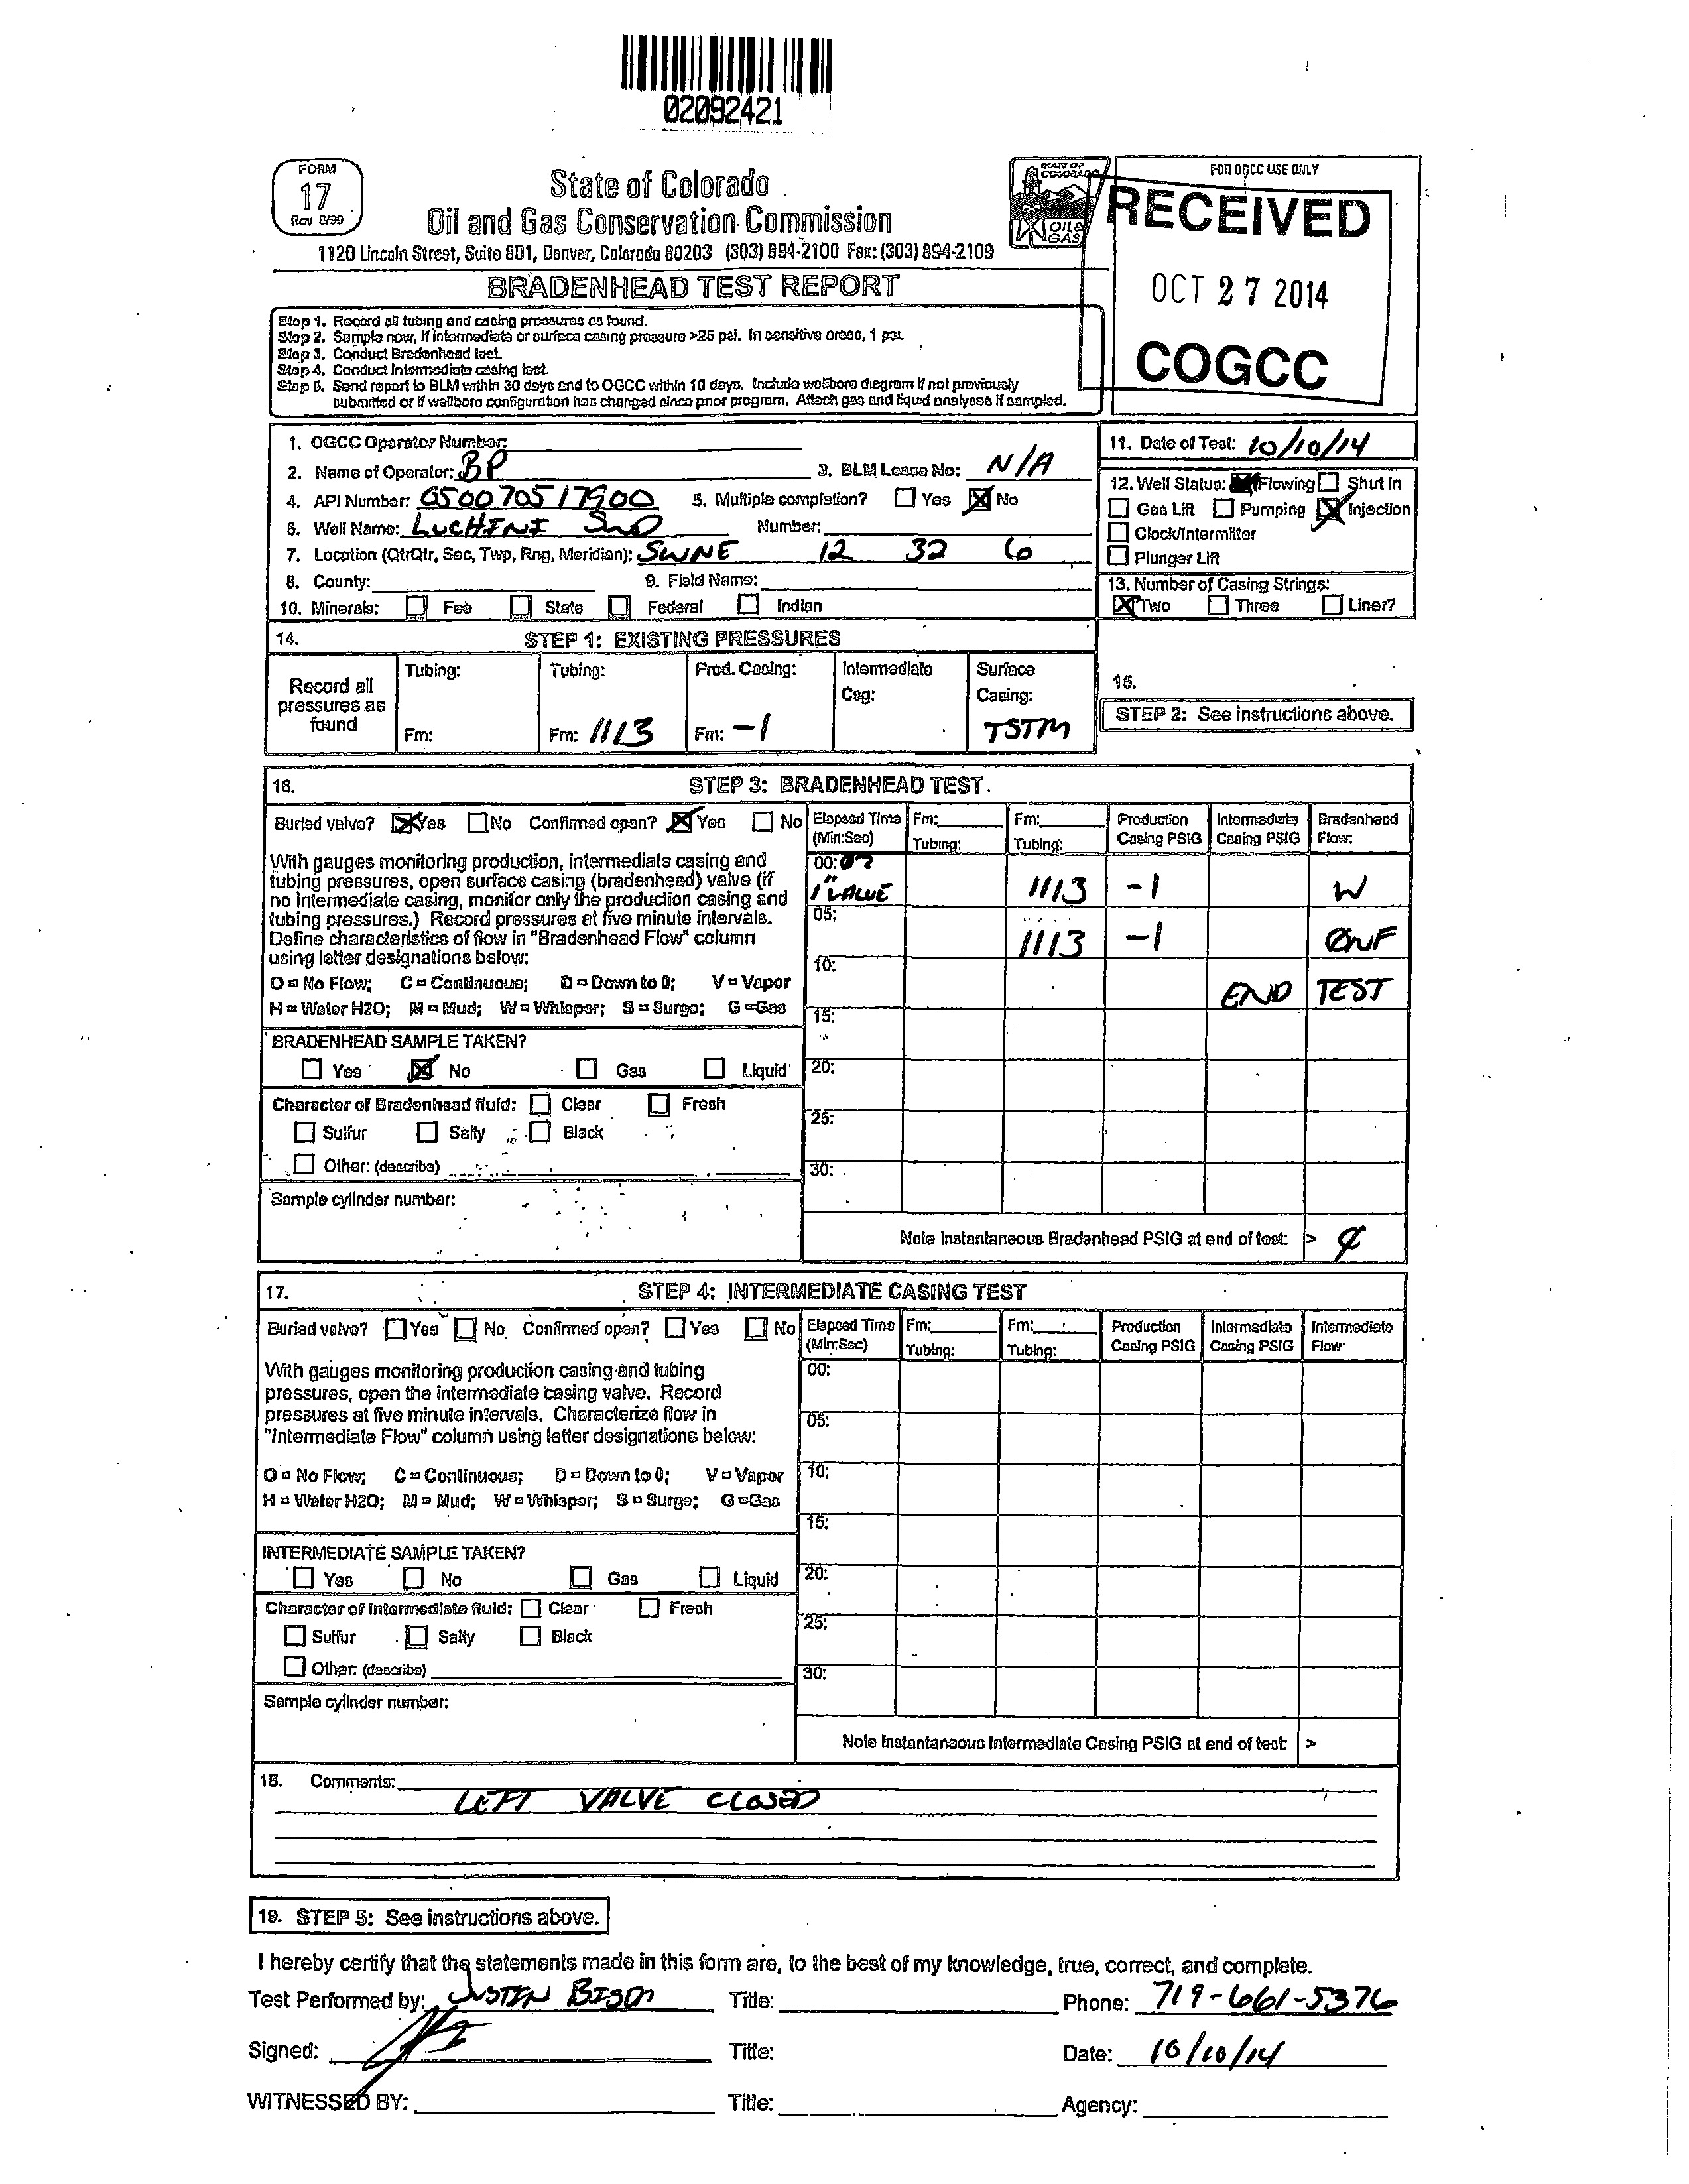 02092421
FORM
17
Rev 8/99
State of Colorado
Oil and Gas Conservation Commission
1120 Lincoln Street, Suite 801, Denver, Colorado 80203 (303) 894-2100 Fax: (303) 894-2109
STATE OF COLORADO
OIL & GAS
FOR OGCC USE ONLY
RECEIVED
OCT 27 2014
COGCC
BRADENHEAD TEST REPORT
Step 1. Record all tubing and casing pressures as found.
Step 2. Sample now, if intermediate or surface casing pressure >25 psi. In sensitive areas, 1 psi.
Step 3. Conduct Bradenhead test.
Step 4. Conduct Intermediate casing test.
Step 5. Send report to BLM within 30 days and to OGCC within 10 days. Include wellbore diagram if not previously
submitted or if wellbore configuration has changed since prior program. Attach gas and liquid analyses if sampled.
1. OGCC Operator Number:
2. Name of Operator: BP 3. BLM Lease No: N/A
4. API Number: 050070517900 5. Multiple completion? Yes No
6. Well Name: LUCHINI SWD Number:
7. Location (QtrQtr, Sec, Twp, Rng, Meridian): SWNE 12 32 6
8. County: 9. Field Name:
10. Minerals: Fee State Federal Indian
11. Date of Test: 10/10/14
12. Well Status: Flowing Shut In
Gas Lift Pumping Injection
Clock/Intermitter
Plunger Lift
13. Number of Casing Strings:
Two Three Liner?
14. STEP 1: EXISTING PRESSURES
Record all pressures as found
Tubing: Fm:
Tubing: Fm: 1113
Prod. Casing: Fm: -1
Intermediate Csg:
Surface Casing: TSTM
15.
STEP 2: See instructions above.
16. STEP 3: BRADENHEAD TEST.
Buried valve? Yes No Confirmed open? Yes No
With gauges monitoring production, intermediate casing and
tubing pressures, open surface casing (bradenhead) valve (if
no intermediate casing, monitor only the production casing and
tubing pressures.) Record pressures at five minute intervals.
Define characteristics of flow in "Bradenhead Flow" column
using letter designations below:
O = No Flow; C = Continuous; D = Down to 0; V = Vapor
H = Water H2O; M = Mud; W = Whisper; S = Surge; G = Gas
BRADENHEAD SAMPLE TAKEN?
Yes No Gas Liquid
Character of Bradenhead fluid: Clear Fresh
Sulfur Salty Black
Other: (describe)
Sample cylinder number:
Elapsed Time (Min:Sec) Fm: Tubing: Fm: Tubing: Production Casing PSIG Intermediate Casing PSIG Bradenhead Flow:
00:
1" VALVE 1113 -1 W
05: 1113 -1 ØNF
10: END TEST
15:
20:
25:
30:
Note Instantaneous Bradenhead PSIG at end of test: > Ø
17. STEP 4: INTERMEDIATE CASING TEST
Buried valve? Yes No Confirmed open? Yes No
With gauges monitoring production casing and tubing
pressures, open the intermediate casing valve. Record
pressures at five minute intervals. Characterize flow in
"Intermediate Flow" column using letter designations below:
O = No Flow; C = Continuous; D = Down to 0; V = Vapor
H = Water H2O; M = Mud; W = Whisper; S = Surge; G = Gas
INTERMEDIATE SAMPLE TAKEN?
Yes No Gas Liquid
Character of Intermediate fluid: Clear Fresh
Sulfur Salty Black
Other: (describe)
Sample cylinder number:
Elapsed Time (Min:Sec) Fm: Tubing: Fm: Tubing: Production Casing PSIG Intermediate Casing PSIG Intermediate Flow
00:
05:
10:
15:
20:
25:
30:
Note Instantaneous Intermediate Casing PSIG at end of test: >
18. Comments:
LEFT VALVE CLOSED
19. STEP 5: See instructions above.
I hereby certify that the statements made in this form are, to the best of my knowledge, true, correct, and complete.
Test Performed by: JUSTIN Title: Phone: 719-661-5376
Signed: Title: Date: 10/10/14
WITNESSED BY: Title: Agency: